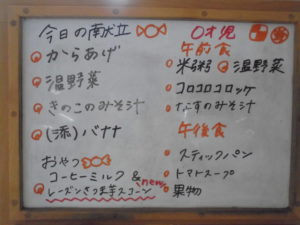 今日の献立
からあげ
温野菜
きのこのみそ汁
(添)バナナ
おやつ
コーヒーミルク &
new
レーズンさつま芋スコーン
0才児
午前食
米粥 温野菜
コロコロコロッケ
なすのみそ汁
午後食
スティックパン
トマトスープ
果物